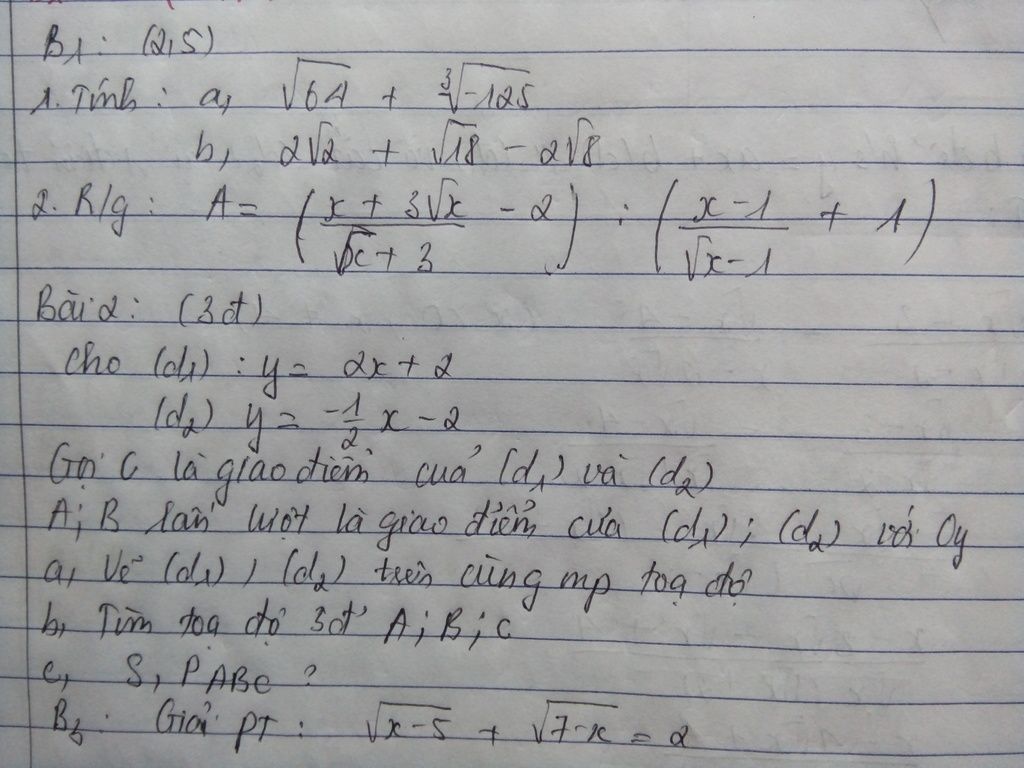 B1: (2,5)
1. Tính: a, √64 + ∛-125
b, 2√2 + √18 - 2√8
2. R/g: A = ( (x + 3√x)/(√x + 3) - 2 ) : ( (x-1)/(√x-1) + 1 )
Bài 2: (3đ)
Cho (d1): y = 2x + 2
(d2) y = -1/2 x - 2
Gọi C là giao điểm của (d1) và (d2)
A; B lần lượt là giao điểm của (d1); (d2) với Oy
a, Vẽ (d1), (d2) trên cùng mp toạ độ
b, Tìm toạ độ 3đ' A; B; C
c, S, P ABC ?
B3: Giải PT: √x-5 + √7-x = 2